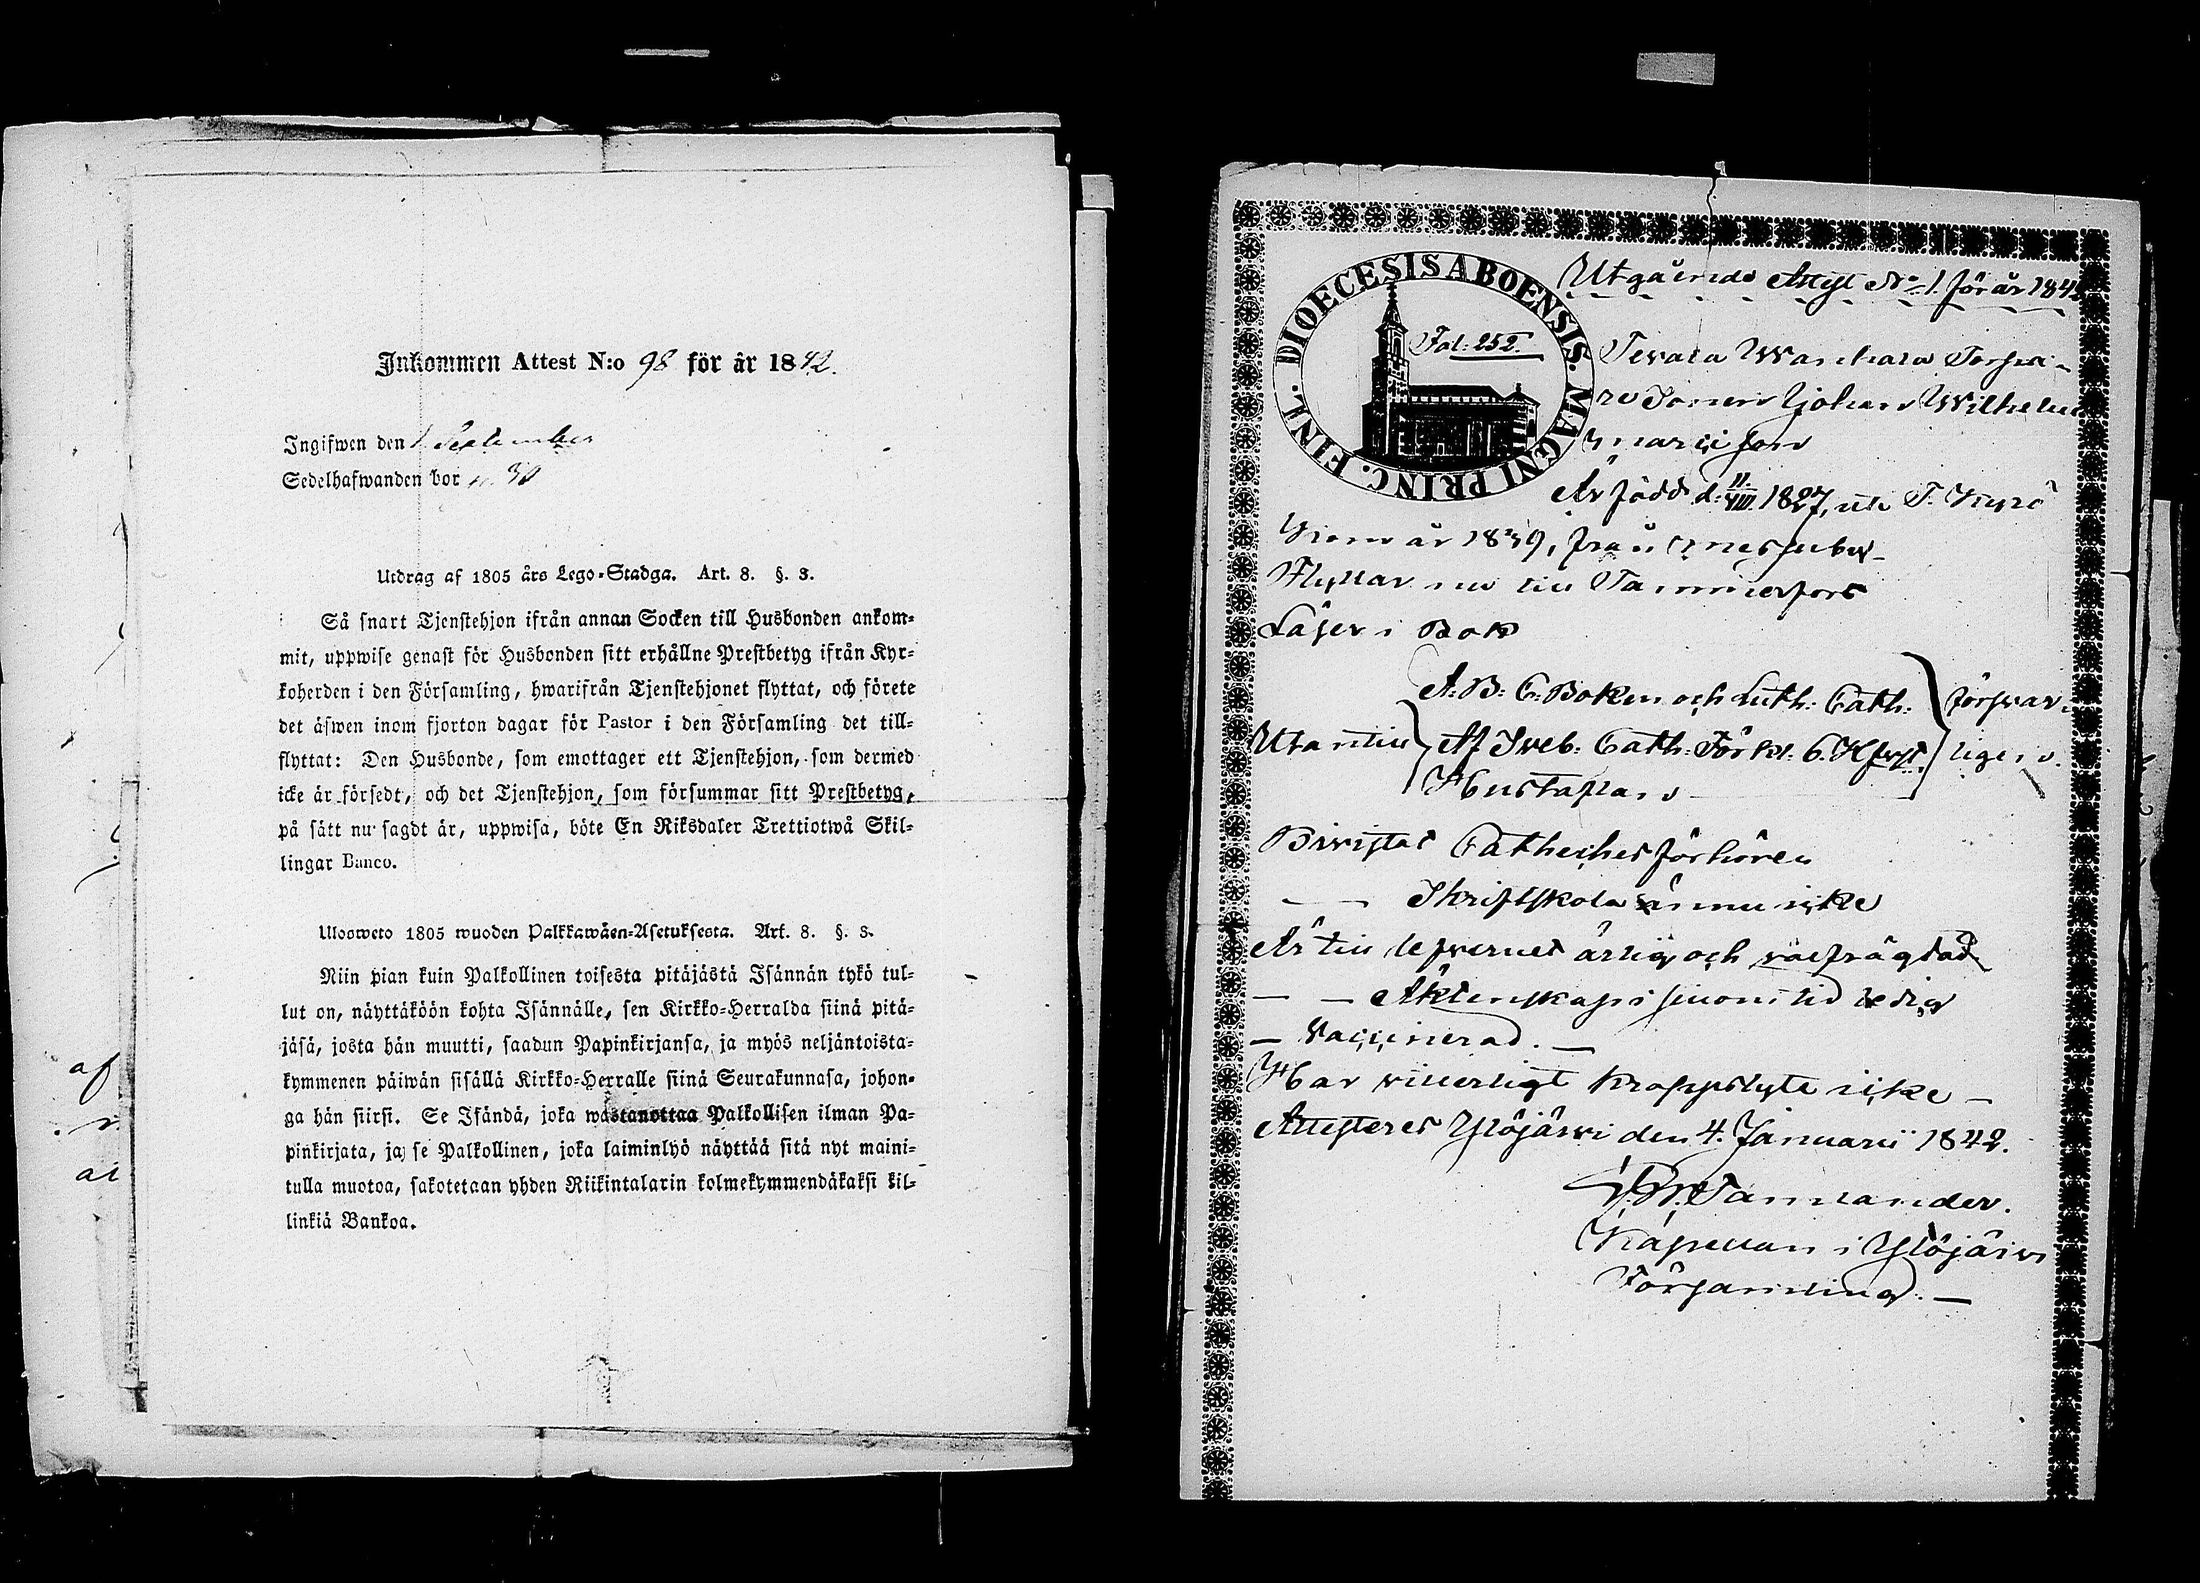 Inkommen Attest N:o 98 för år 1842.
Ingifwen den 1 September
Sedelhafwanden bor n. 30
Utdrag af 1805 års Lego-Stadga. Art. 8. §. 3.
Så snart Tjenstehjon ifrån annan Socken till Husbonden ankom-
mit, uppwise genast för Husbonden sitt erhållne Prestbetyg ifrån Kyr-
koherden i den Församling, hwarifrån Tjenstehjonet flyttat, och förete
det äfwen inom fjorton dagar för Pastor i den Församling det till-
flyttat: Den Husbonde, som emottager ett Tjenstehjon, som dermed
icke är försedt, och det Tjenstehjon, som försummar sitt Prestbetyg,
på sätt nu sagdt är, uppwisa, böte En Riksdaler Trettiotwå Skil-
lingar Banco.
Ulosweto 1805 wuoden Palkkawäen-Asetuksesta. Art. 8. §. 3.
Niin pian kuin Palkollinen toisesta pitäjästä Isännän tykö tul-
lut on, näyttäköön kohta Isännälle, sen Kirkko-Herralda siinä pitä-
jäsä, josta hän muutti, saadun Papinkirjansa, ja myös neljäntoista-
kymmenen päiwän sisällä Kirkko-Herralle siinä Seurakunnasa, johon-
ga hän siirsi. Se Isändä, joka wastanottaa Palkollisen ilman Pa-
pinkirjata, ja se Palkollinen, joka laiminlyö näyttää sitä nyt maini-
tulla muotoa, sakotetaan yhden Riikintalarin kolmekymmendäkaksi kil-
linkiä Bankoa.
af
ai
DIOECESIS ABOENSIS. MAGNI PRINC. FINL.
Fol: 252.
Utgående Attest No 1. för år 184
Torpa-
re Sonen Johan Wilhelm
Är född d: 11/VIII 1827, uti T. Kyrö
Kom år 1839, från
Flyttar nu till Tammerfors
Läser i Bok
A.B.C. Boken och Luth: Cath:
Utantill Af Sveb: Cath: Förkl.
försvar-
ligen.
Hustaflan
Bivistat Catheches förhören
— — Skriftskola ännu icke
Är till lefvernet ärlig och välfrägdad
— — Äktenskaps ledig
— Vaccinerad. —
Har kroppslyte icke —
Attesteres Ylöjärvi den 4. Januarii 1842.
Tannander.
Kapellan i Ylöjärvi
Församling. —